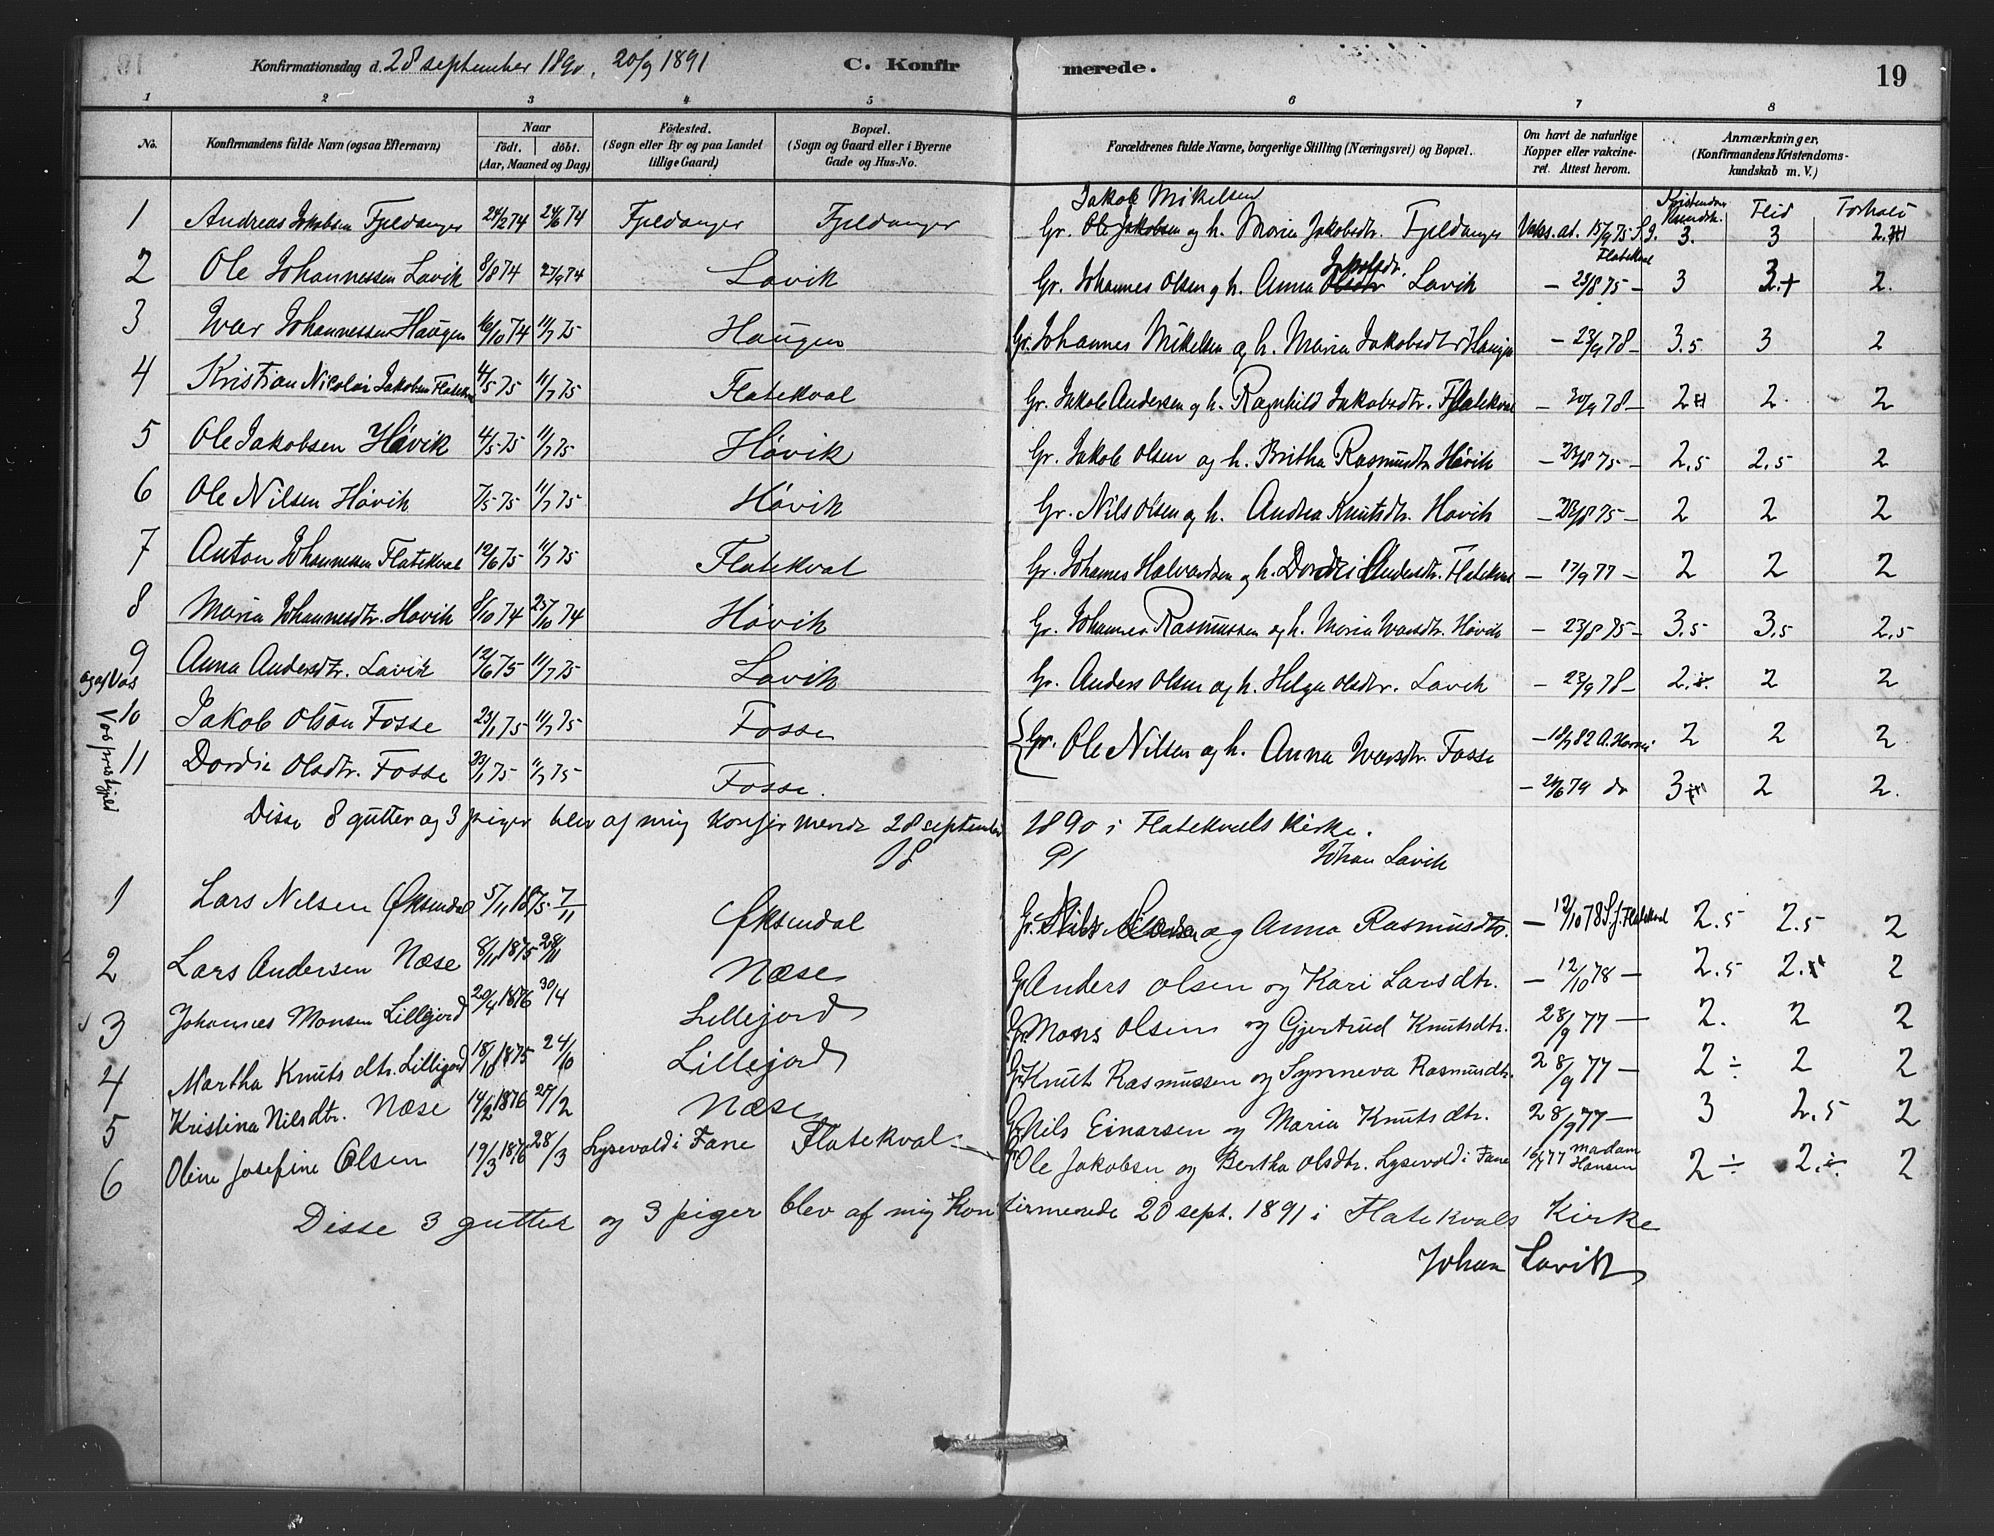 Konfirmationsdag d. 28 september 1890, 20/9 1891 C. Konfirmerede. 19
1 2 3 4 5 6 7 8
No. Konfirmandens fulde Navn (ogsaa Efternavn) Naar født. døbt. (Aar, Maaned og Dag) Födested. (Sogn eller By og paa Landet tillige Gaard) Bopæl. (Sogn og Gaard eller i Byerne Gade og Hus-No. Forældrenes fulde Navne, borgerlige Stilling (Næringsvei) og Bopæl. Om havt de naturlige Kopper eller vakcineret. Attest herom. Anmærkninger, (Konfirmandens Kristendomskundskab m. V.)
Kristendoms Kundsk. Flid Forhold
Jakob Mikelsen
1 Andreas Jakobsen Fjeldanger 24/2 74 24/6 74 Fjeldanger Fjeldanger Gr. Ole Jakobsen og h. Maria Jakobsdtr. Fjeldanger Vaks. at. 15/9 75 3. 3 2
Flatekval
2 Ole Johannessen Lavik 8/8 74 27/9 74 Lavik Gr. Johannes Olsen og h. Anna Olsdtr Jakobsdtr. Lavik – 23/8 75 – 3 3.+ 2.
3 Ivar Johannessen Haugen 16/10 74 11/7 75 Haugen Gr. Johannes Mikelsen og h. Maria Jakobsdtr Haugen – 23/9 78 – 3.5 3 2
4 Kristian Nicolai Jakobsen Flatekval 4/5 75 11/7 75 Flatekval Gr. Jakob Andersen og h. Ragnhild Jakobsdtr. Flatekval – 20/9 78 – 2 2. 2
5 Ole Jakobsen Høvik 4/5 75 11/7 75 Høvik Gr. Jakob Olsen og h. Britha Rasmusdtr Høvik – 23/8 75 – 2.5 2.5 2
6 Ole Nilsen Høvik 7/5 75 11/7 75 Høvik Gr. Nils Olsen og h. Andrea Knutsdtr. Høvik – 23/8 75 – 2 2 2
7 Anton Johannessen Flatekval 12/6 75 11/7 75 Flatekval Gr. Johannes Halvardsen og h. Dordei Andersdtr. Flatekval – 17/9 77 – 2 2 2
8 Maria Johannesdtr. Høvik 8/10 74 25/10 74 Høvik Gr. Johannes Rasmussen og h. Maria Ivarsdtr. Høvik – 23/8 75 – 3.5 3.5 2.5
9 Anna Andersdtr. Lavik 12/6 75 11/7 75 Lavik Gr. Anders Olsen og h. Helga Olsdtr. Lavik – 23/9 78 – 2 2 2
og af Vos
Vos prestegjeld
10 Jakob Olson Fosse 23/1 75 11/7 75 Fosse Gr. Ole Nilsen og h. Anna Ivarsdtr. Fosse 82 2 2 2.
11 Dordie Olsdtr. Fosse 23/1 75 11/7 75 Fosse. 79 do 3 2 2.
Disse 8 gutter og 3 piger blev af mig konfirmerede 28 september 1890 i Flatekvals kirke.
Johan Lavik
18 91
1 Lars Nilsen Øksendal 5/11 1875 7/11 Øksendal Gr. Nils og Anna Rasmusdtr. – 12/10 78 S.J. Flatekval 2.5 2.5 2
2 Lars Andersen Næse 8/11 1875 28/11 Næse Gr Anders Olsen og Kari Larsdtr. – 12/10 78 – 2.5 2. 2
3 Johannes Monsen Lillejord 20/4 1876 30/4 Lillejord Gr Mons Olsen og Gjertrud Knutsdtr. 28/9 77 – 2. 2 2
4 Martha Knutsdtr. Lillejord 18/10 1875 24/10 Lillejord Gr Knut Rasmussen og Synneva Rasmusdtr. 28/9 77 – 2 ÷ 2 2
5 Kristina Nilsdtr. Næse 14/2 1876 27/2 Næse Gr Nils Einarsen og Maria Knutsdtr. 28/9 77 – 3 2.5 2
6 Oline Josefine Olsen 19/3 1876 28/3 Lysevold i Fane Flatekval Ole Jakobsen og Bertha Olsdtr. Lysevold i Fane 77 Madam Hansen 2 ÷ 2.÷ 2
Disse 3 gutter og 3 piger blev af mig konfirmerede 20 sept. 1891 i Flatekvals Kirke
Johan Lavik